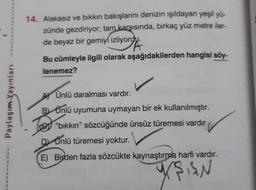 14. Alakasız ve bıkkın bakışlarını denizin ışıldayan yeşil yü-
zünde gezdiriyor; tam karşısında, birkaç yüz metre iler-
de beyaz bir gemiyi izliyordu.
Bu cümleyle ilgili olarak aşağıdakilerden hangisi söy-
lenemez?
A) Ünlü daralması vardır.
B) Ünlü uyumuna uymayan bir ek kullanılmıştır.
C) "bıkkın" sözcüğünde ünsüz türemesi vardır.
D) Ünlü türemesi yoktur.
E) Birden fazla sözcükte kaynaştırma harfi vardır.
YŞSN
Paylaşım Yayınları